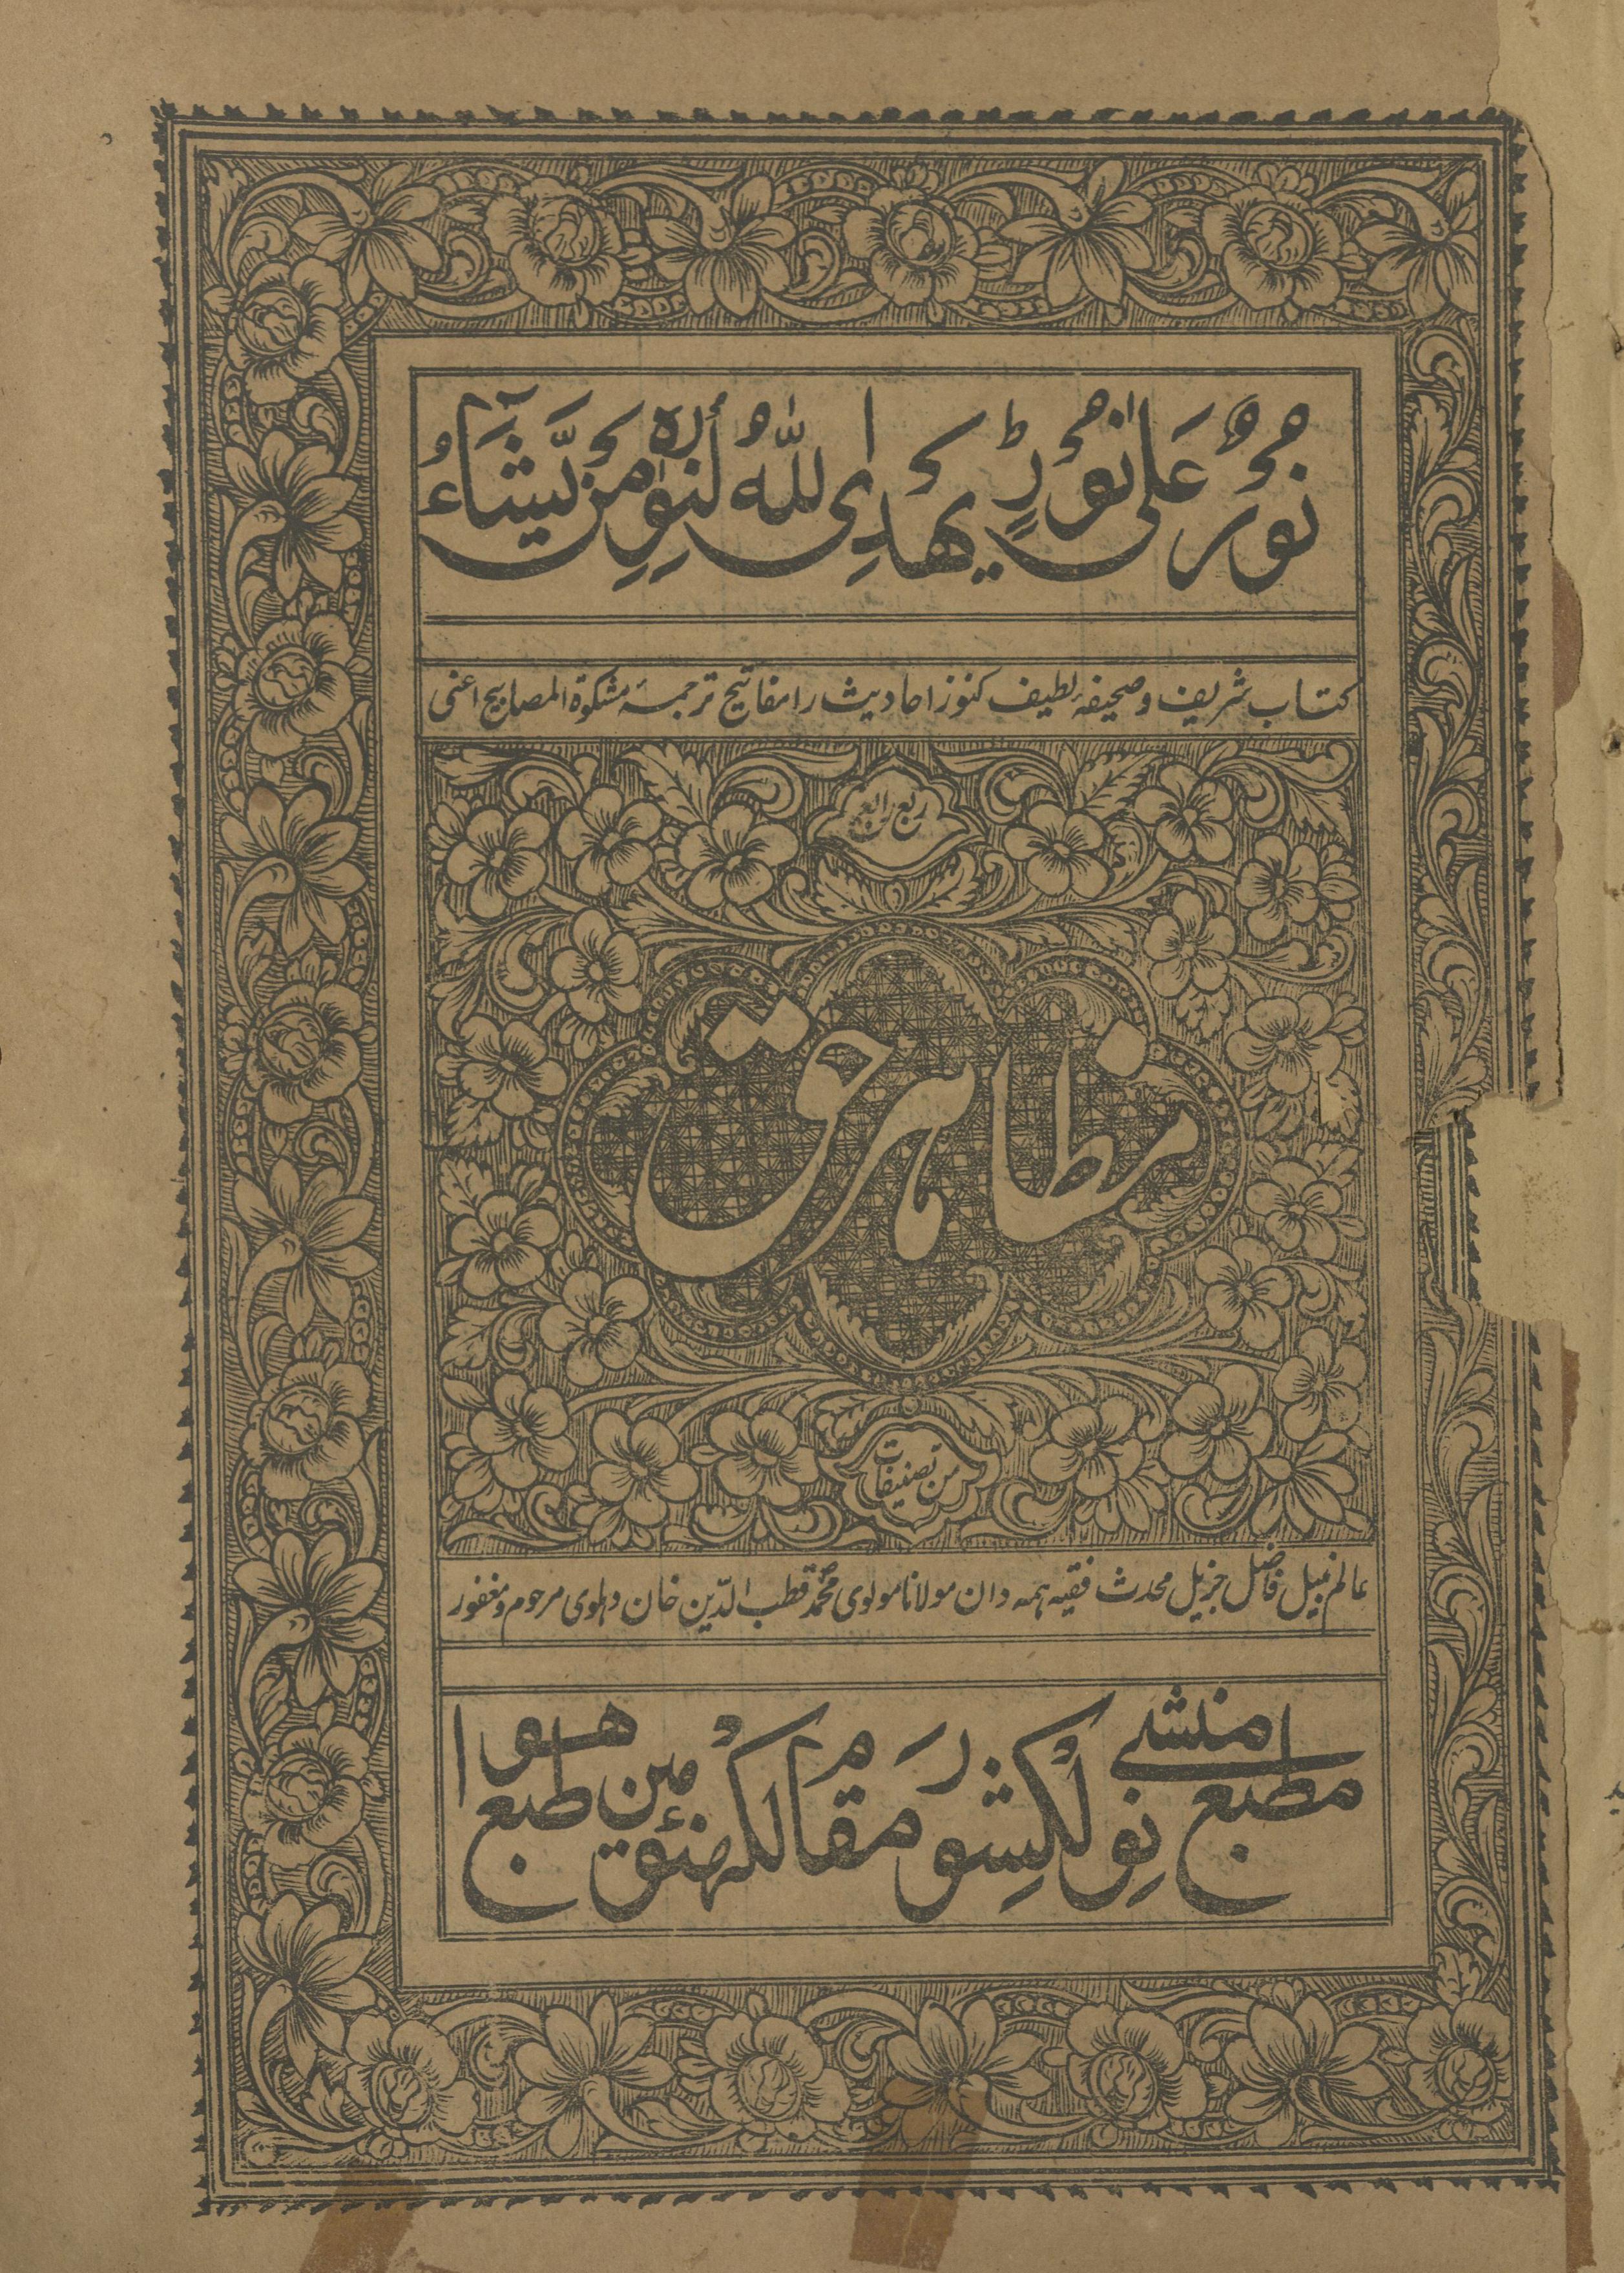 نُورٌ عَلیٰ نُورٍ یَهْدِی اللّٰهُ لِنُورِهٖ مَنْ یَّشَآءُ
کتاب شریف و صحیفۂ لطیف کنوز احادیث را مفاتیح ترجمۂ مشکوٰة المصابیح اعنی
ربع رابع
مظاہر حق
من تصنیفات
عالم نبیل فاضل جزیل محدث فقیہ ہمہ دان مولانا مولوی محمد قطب الدّین خان دہلوی مرحوم و مغفور
مطبع منشی نولکشور مقام لکھنؤ مین طبع ہوا